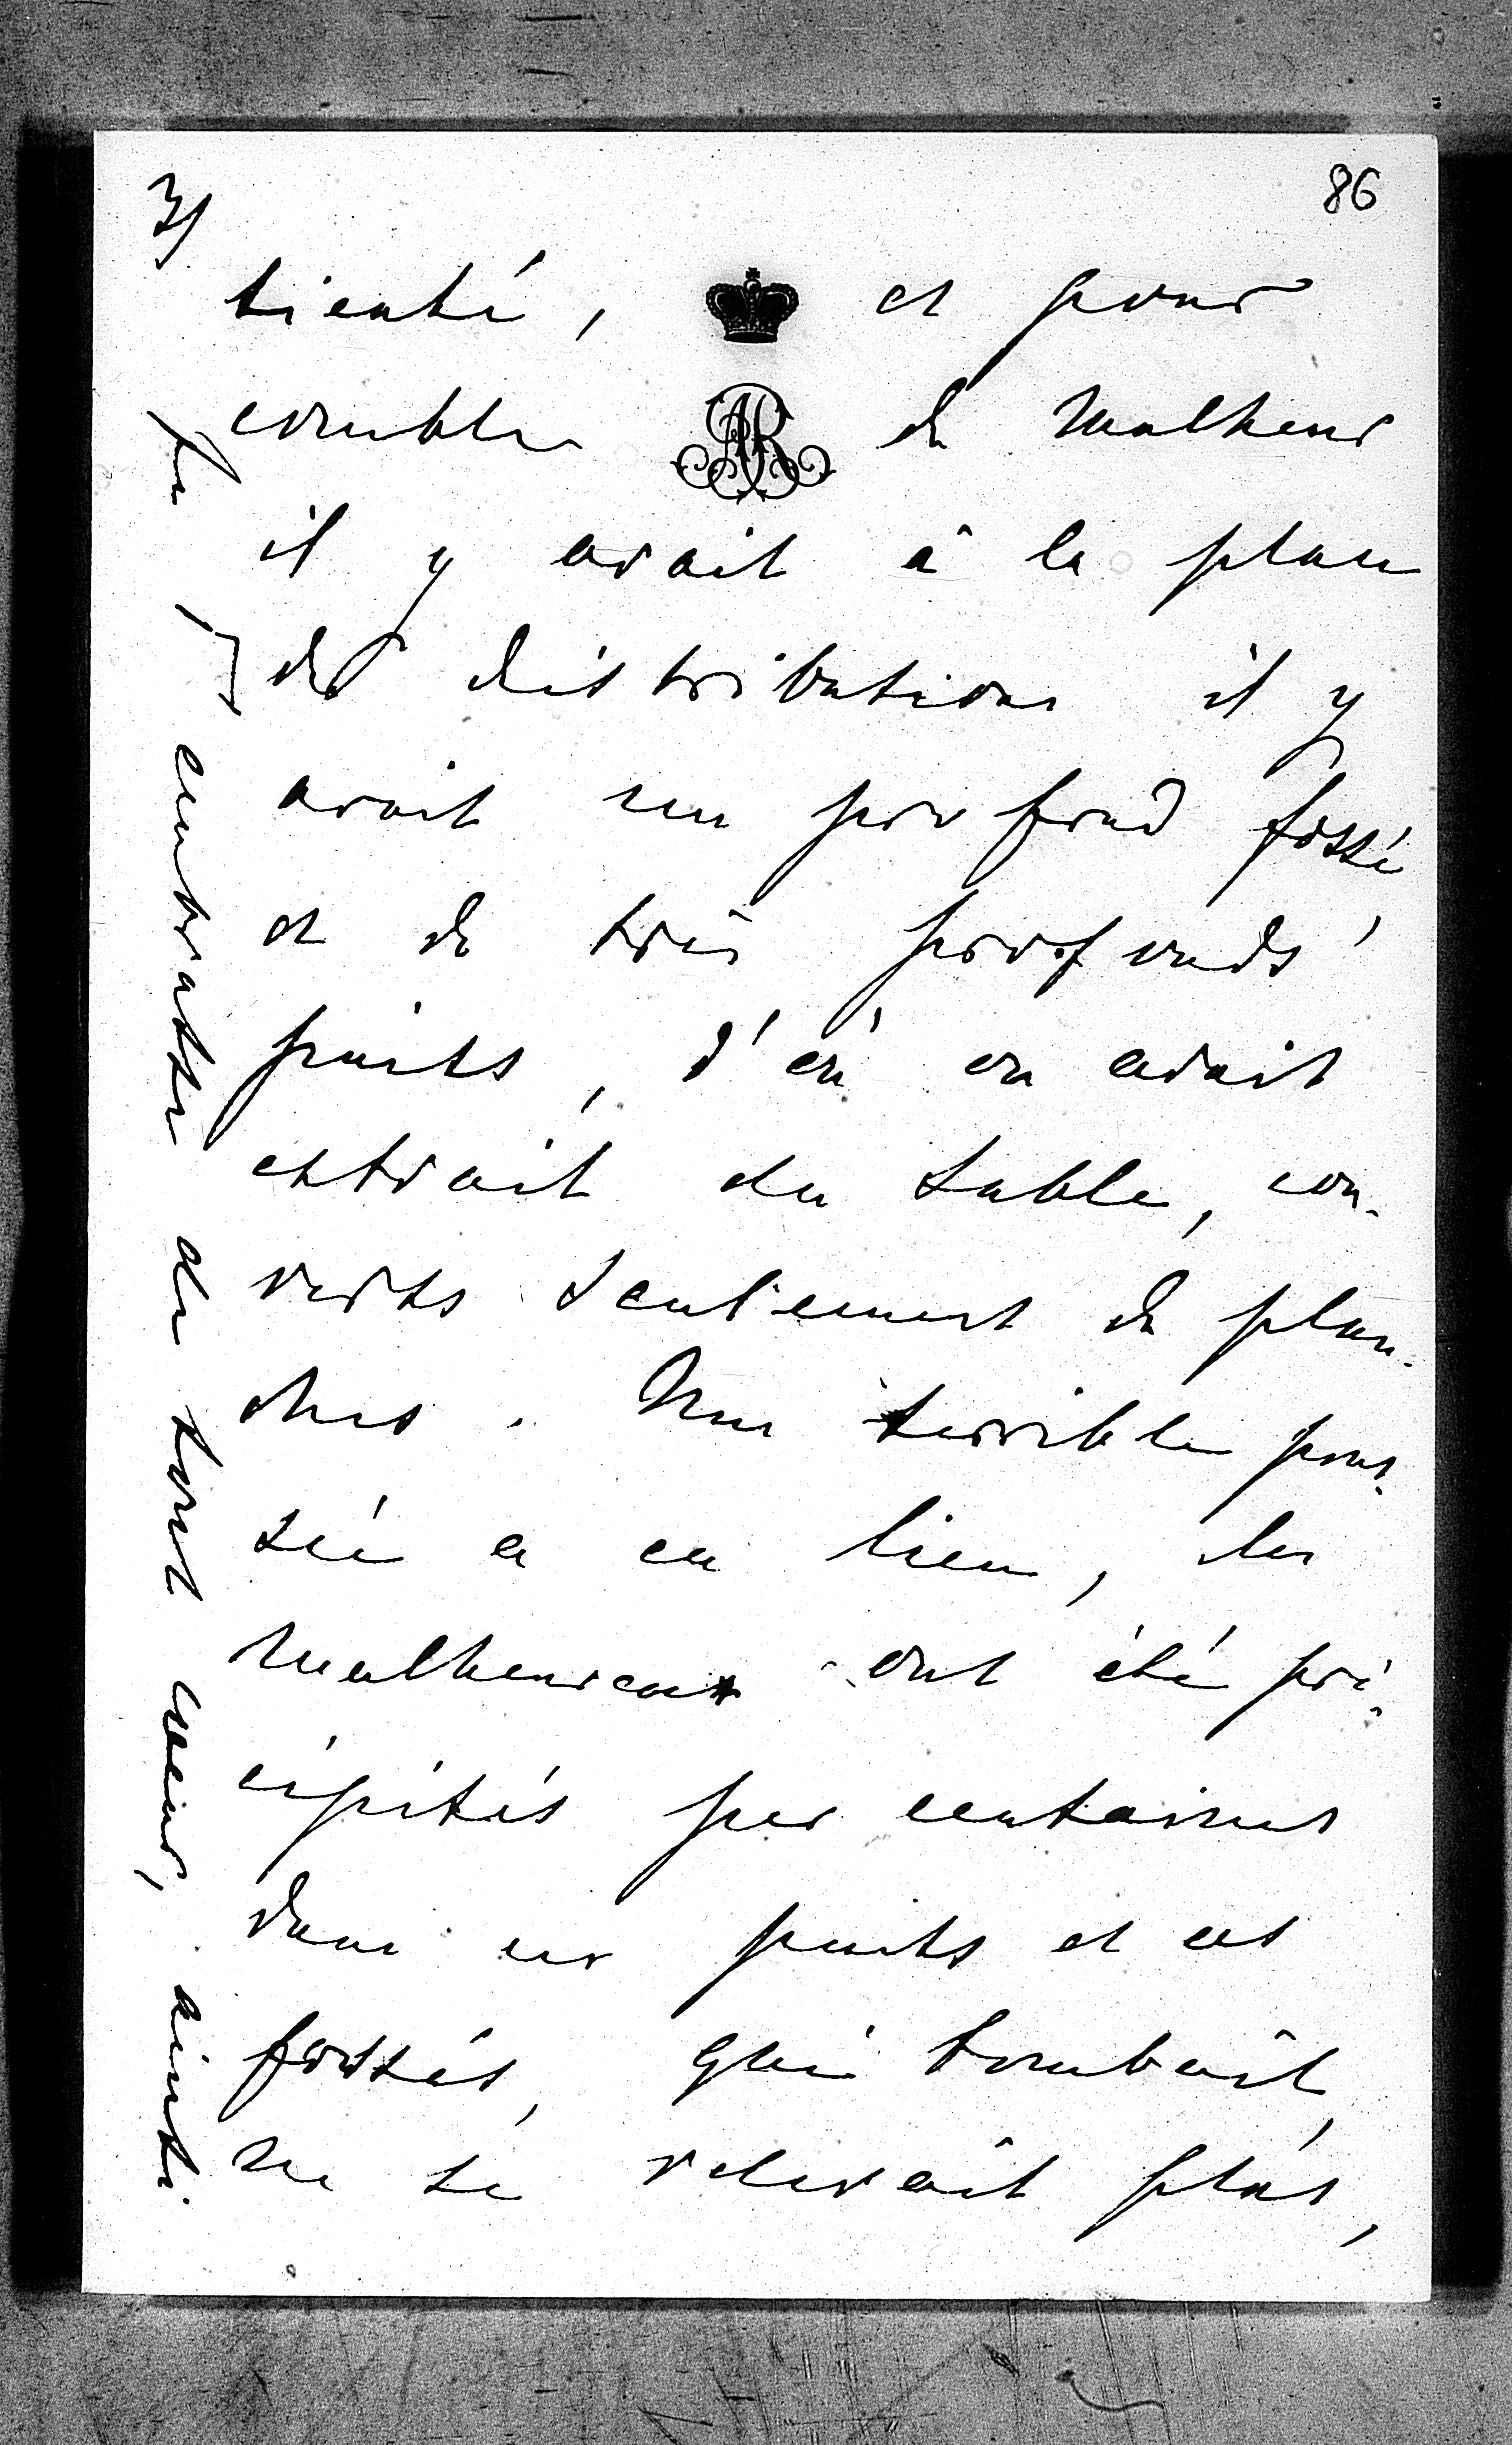 86
3)
tienté, et pour
comble de malheur
il y avait à la place
des distributions il y
avait un profond fossé
et de très profonds
puits, d'où on avait
extrait du sable, cou-
verts seulement de plan-
ches. Une terrible pous-
sée a eu lieu, les
malheureux ont été pré-
cipités par centaines
dans ces puits et ces
fossés, qui tombait,
ne se relevait plus,
Je t'embrasse de tout coeur, ainsi